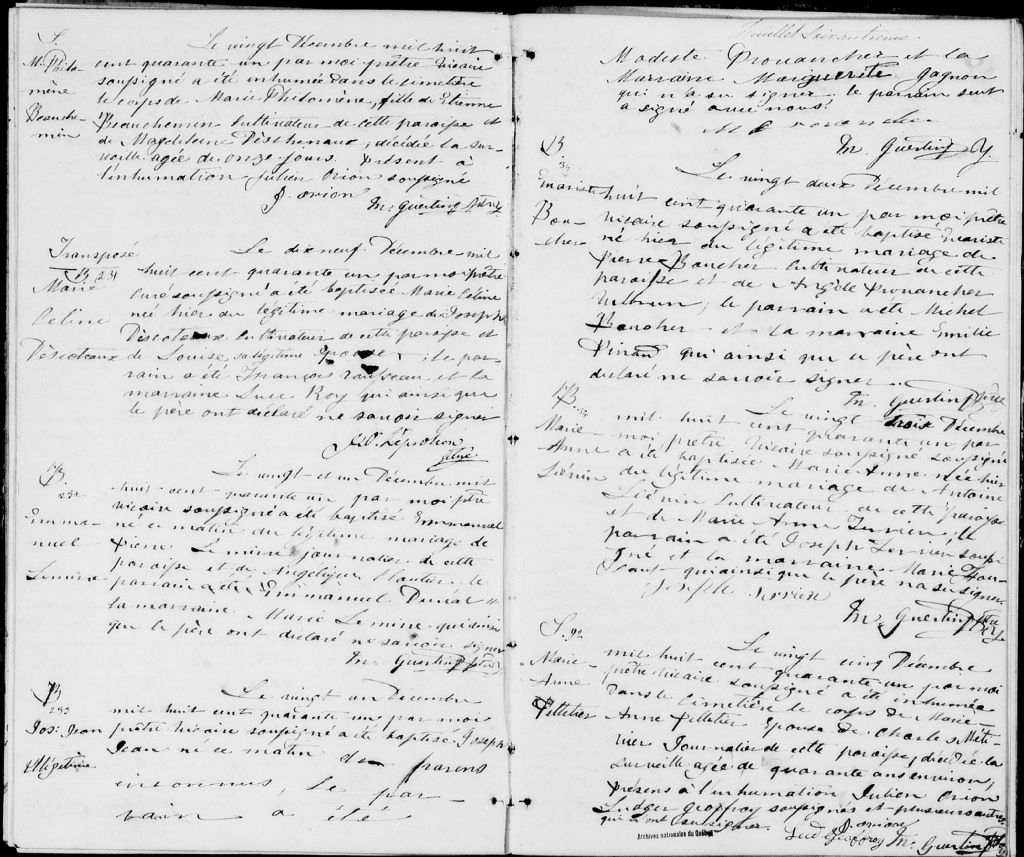 S.
M. Philo
mène
Beauche-
min
Le vingt Décembre mil huit
cent quarante un par moi prêtre Vicaire
soussigné a été inhumée dans le cimetière
le corps de Marie Philomène, fille de Etienne
Beauchemin Cultivateur de cette paroisse et
de Magdeleine Désthenaux, décédée la sur-
veille agée de onze jours. Présent à
l'inhumation Julien Orion soussigné
J. Orion M. Guertin Ptre V.
Transposé
B 231
Marie
Celine
Déscoteaux
Le dix neuf Décembre mil
huit cent quarante un par moi prêtre
curé soussigné a été baptisée Marie Céline
née hier du légitime mariage de Joseph
Déscoteaux Cultivateur de cette paroisse et
de Louise, sa légitime épouse ; le par-
rain a été François Rousseau et la
marraine Luce Roy qui ainsi que
le père ont déclaré ne savoir signer
B.
232
Emma-
nuel
Lemire
Le vingt et un Décembre mil
huit cent quarante un par moi ptre
vicaire soussigné a été baptisé Emmanuel
né ce matin du légitime mariage de
Pierre Lemire journalier de cette
paroisse et de Angélique le
parrain a été Emmanuel
la marraine Marie Lemire qui ainsi
que le père ont déclaré ne savoir signer
M. Guertin ptre V.
B
233
Jos: Jean
Illégitime
Le vingt un Décembre
mil huit cent quarante un par moi
prêtre vicaire soussigné a été baptisé Joseph
Jean né ce matin de parens
inconnus, le par-
rain a été
Feuillet Soixantième
Modeste Prouancher et la
Marraine Marguerite Gagnon
qui n'a su signer le parrain seul
a signé avec nous.
M. Guertin V.
B
Evariste
Bou-
cher
Le vingt deux Décembre mil
huit cent quarante un par moi prêtre
vicaire soussigné a été baptisé Evariste
né hier du légitime mariage de
Pierre Boucher Cultivateur de cette
paroisse et de Angèle Prouancher
le parrain a été Michel
Boucher et la marraine Emilie
Pinard qui ainsi que le père ont
déclaré ne savoir signer.
M. Guertin ptre
B.
Marie
Anne
Le vingt trois Décembre
mil huit cent quarante un par
moi prêtre Vicaire soussigné soussigné
a été baptisée Marie Anne née hier
du légitime mariage de Antoine
Cultivateur de cette paroisse
et de Marie Anne le
parrain a été Joseph soussi-
gné et la marraine Marie
qui ainsi que le père n'a su signer
Joseph
M. Guertin Ptre V.
S. 92
Marie-
Anne
Pelletier
Le vingt cinq Décembre
mil huit cent quarante un par moi
prêtre vicaire soussigné a été inhumée
dans le cimetière le corps de Marie-
Anne Pelletier Epouse de Charles Méti-
vier Journalier de cette paroisse, décédée la
surveille agée de quarante ans environ,
présens à l'inhumation Julien Orion
Ludger Geoffroy soussignés et plusieurs autres
qui n'ont su signer. J. Orion
Lud Geoffroy M. Guertin Ptre
Archives nationales du Québec